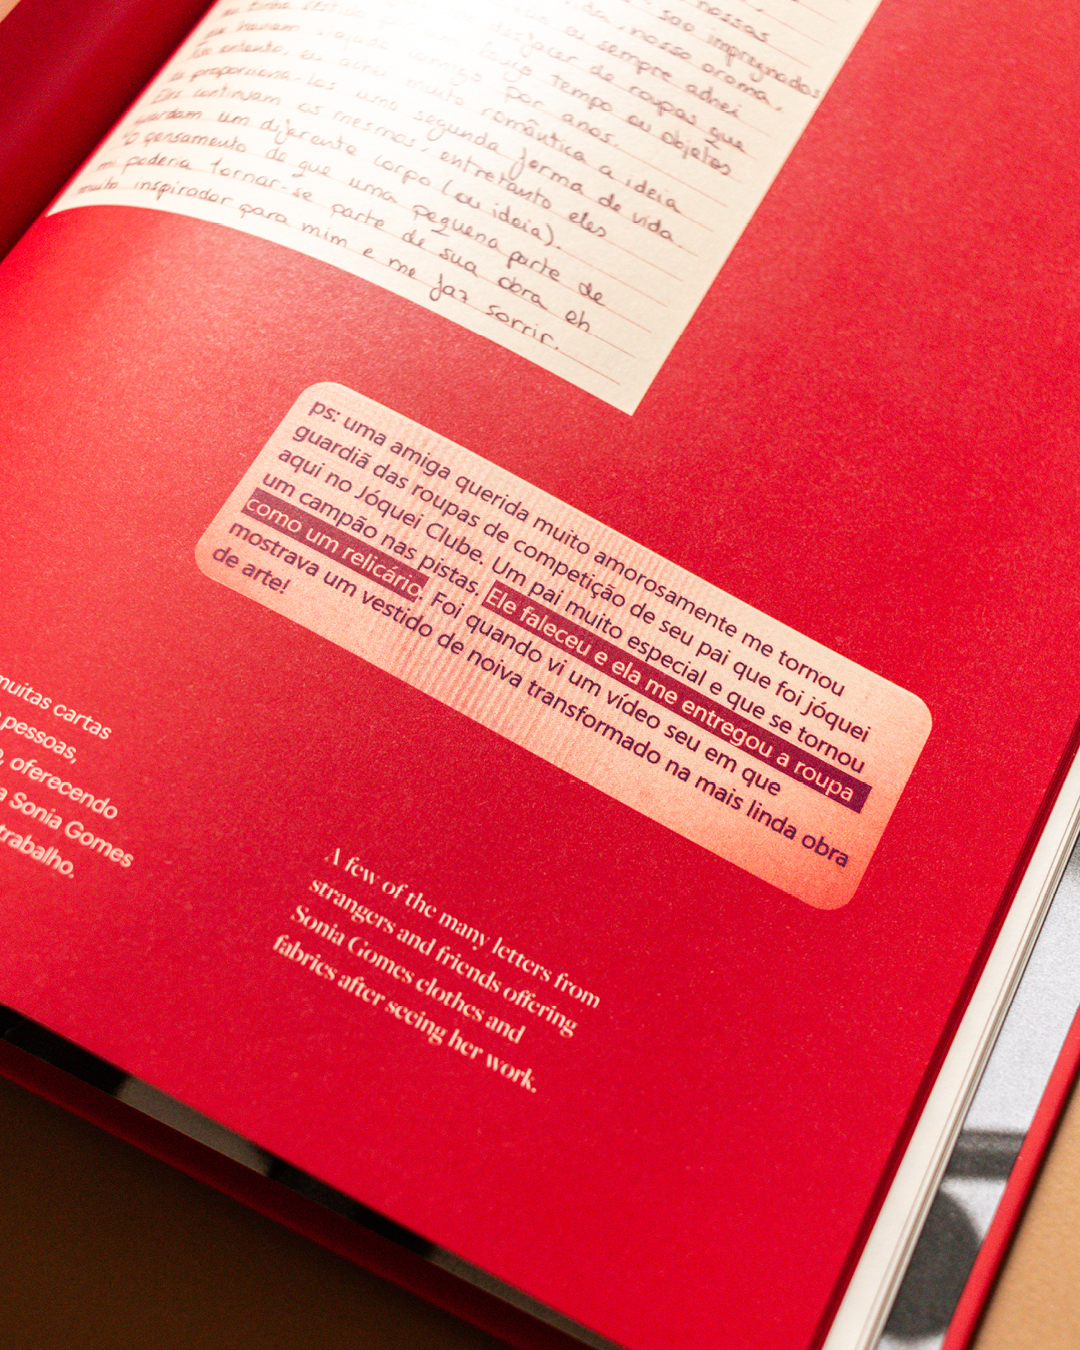 nossas
são impregnados
nosso aroma,
eu sempre achei
desfazer de roupas que
tinha vestido longo tempo ou objetos
que haviam viajado comigo por anos.
No entanto, eu achei muito romântica a ideia
de proporciona-los uma segunda forma de vida.
Eles continuam os mesmos, entretanto eles
guardam um diferente corpo (ou ideia).
O pensamento de que uma pequena parte de
mi poderia tornar-se parte de sua obra eh
muito inspirador para mim e me faz sorrir.
ps: uma amiga querida muito amorosamente me tornou
guardiã das roupas de competição de seu pai que foi jóquei
aqui no Jóquei Clube. Um pai muito especial e que se tornou
um campão nas pistas. Ele faleceu e ela me entregou a roupa
como um relicário. Foi quando vi um vídeo seu em que
mostrava um vestido de noiva transformado na mais linda obra
de arte!
muitas cartas
pessoas,
oferecendo
a Sonia Gomes
trabalho.
A few of the many letters from
strangers and friends offering
Sonia Gomes clothes and
fabrics after seeing her work.